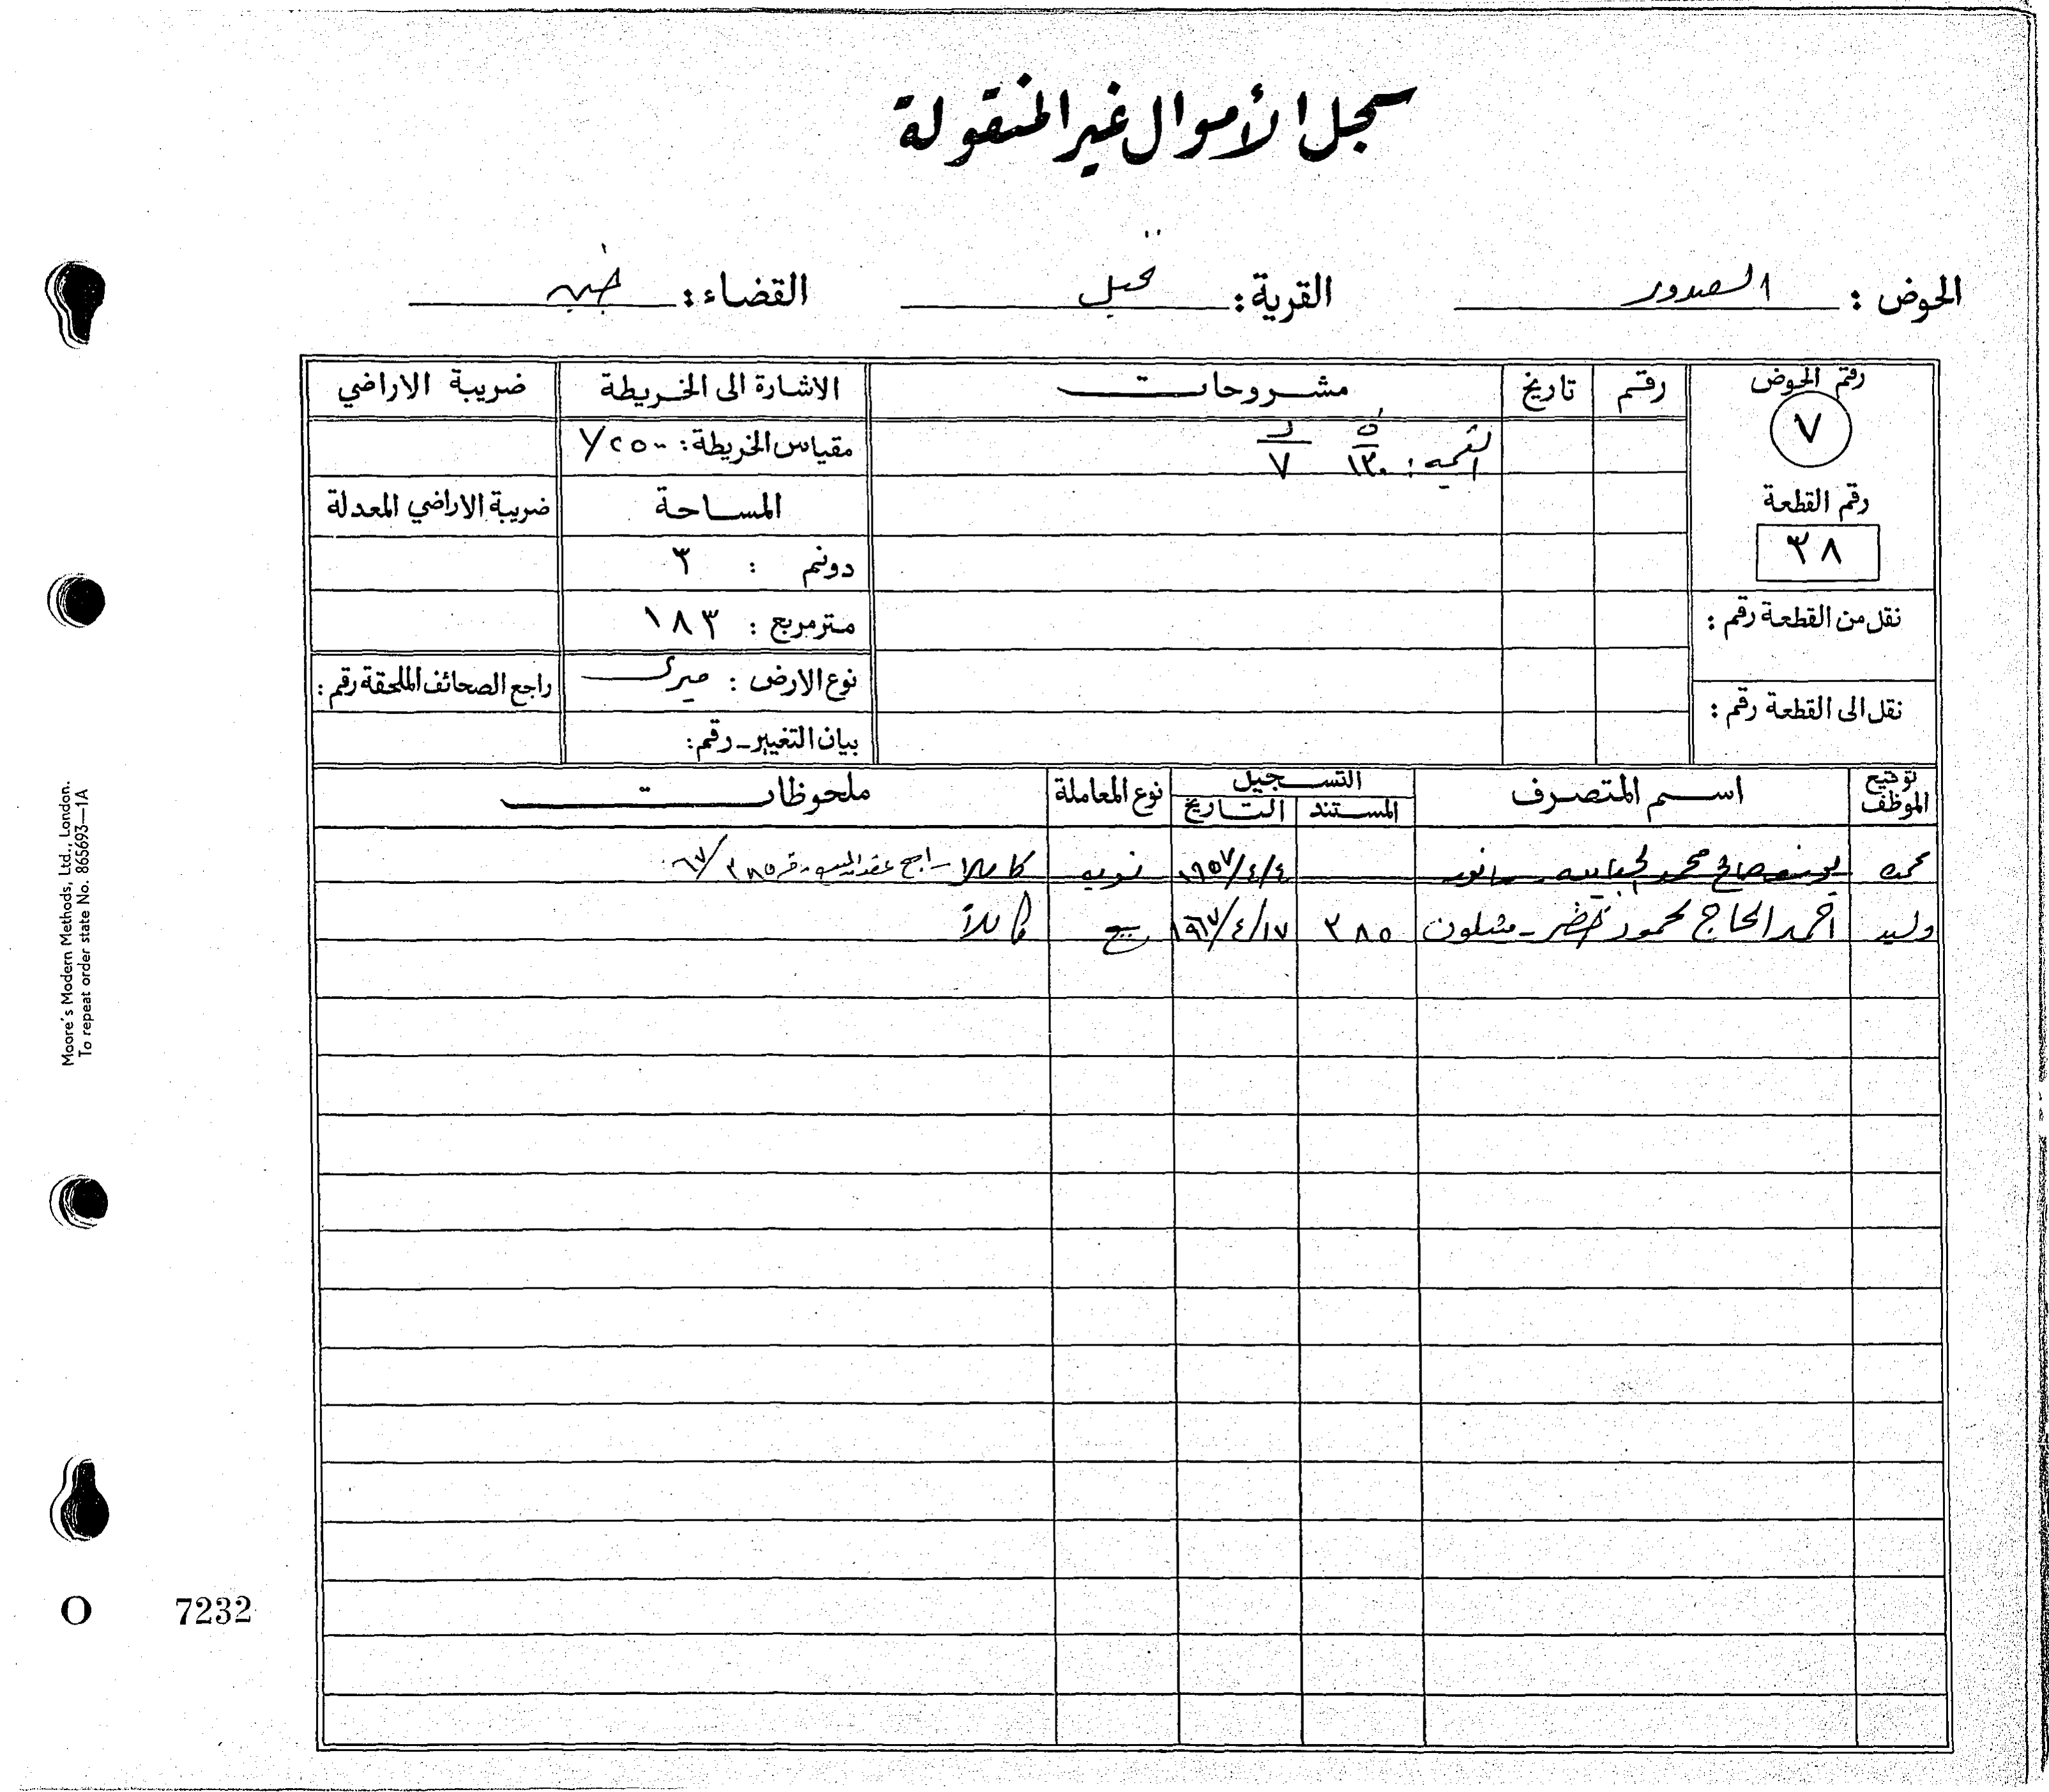 سجل الأموال غير المنقولة
الحوض : الصدور القرية : القضاء : جنين
رقم الحوض رقم تاريخ مشروحات الاشارة الى الخريطة ضريبة الاراضي
٧ القيمة : ١٣٠ ٧ مقياس الخريطة :
رقم القطعة المساحة ضريبة الاراضي المعدلة
٣٨ دونم : ٣
نقل من القطعة رقم : متر مربع : ١٨٣
نوع الارض : ميري راجع الصحائف الملحقة رقم :
نقل الى القطعة رقم : بيان التغيير - رقم :
توقيع الموظف اسم المتصرف التسجيل نوع المعاملة ملحوظات
المستند التاريخ
يوسف صالح محمد ١٩٥٧/٤/٤ كاملا راجع عقد البيع رقم ٣٨٥/٦٧
وليد احمد الحاج محمود خضر - ميثلون ٣٨٥ ١٩٦٧/٤/١٧ بيع كاملاً
Moore's Modern Methods, Ltd., London.
To repeat order state No. 865693—1A
O 7232